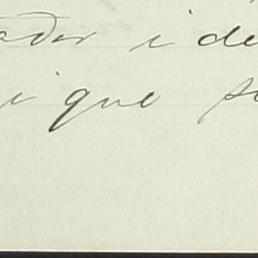 ador i de
i que